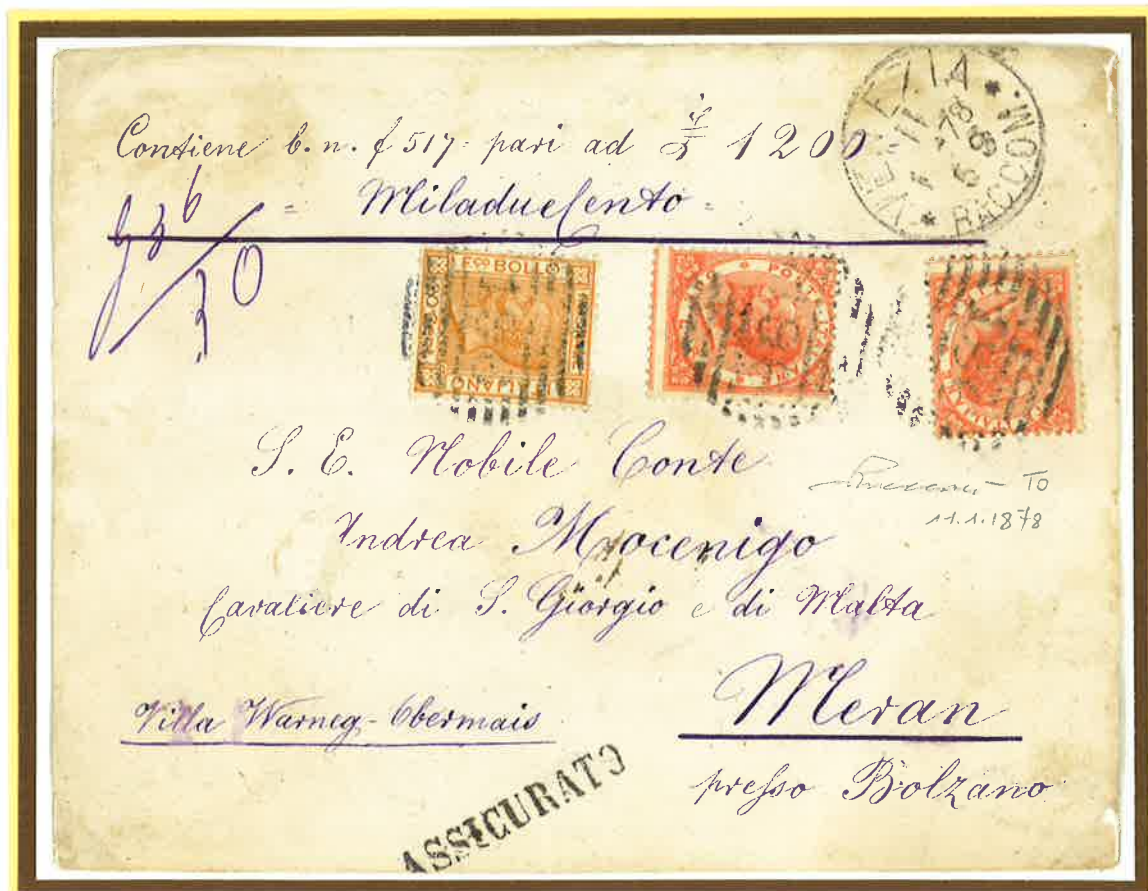 Contiene b. n. f 517 = pari ad £ 1200
= Miladuecento =
VENEZIA * RACCOM. *
11
1-78
6 S
936
30
POSTE ITALIANE
S. E. Nobile Conte
Andrea Mocenigo
TO
11.1.1878
Cavaliere di S. Giorgio e di Malta
Villa Warneg - Obermais
Meran
presso Bolzano
ASSICURATO